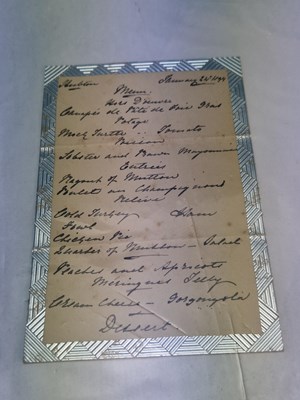 January 24 1899
Menu
Hors D'œuvre
Canapés de Pâté de Foie Gras
Potage
Mock Turtle .. Tomato
Poisson
Lobster and Prawn Mayonnaise
Entrées
Ragout of Mutton
Poulet aux Champignons
Relevé
Cold Turkey Ham
Fowl
Chicken Pie
of Venison - Salad
Peaches and Apricots
Meringues Jelly
Cream Cheese - Gorgonzola
Dessert